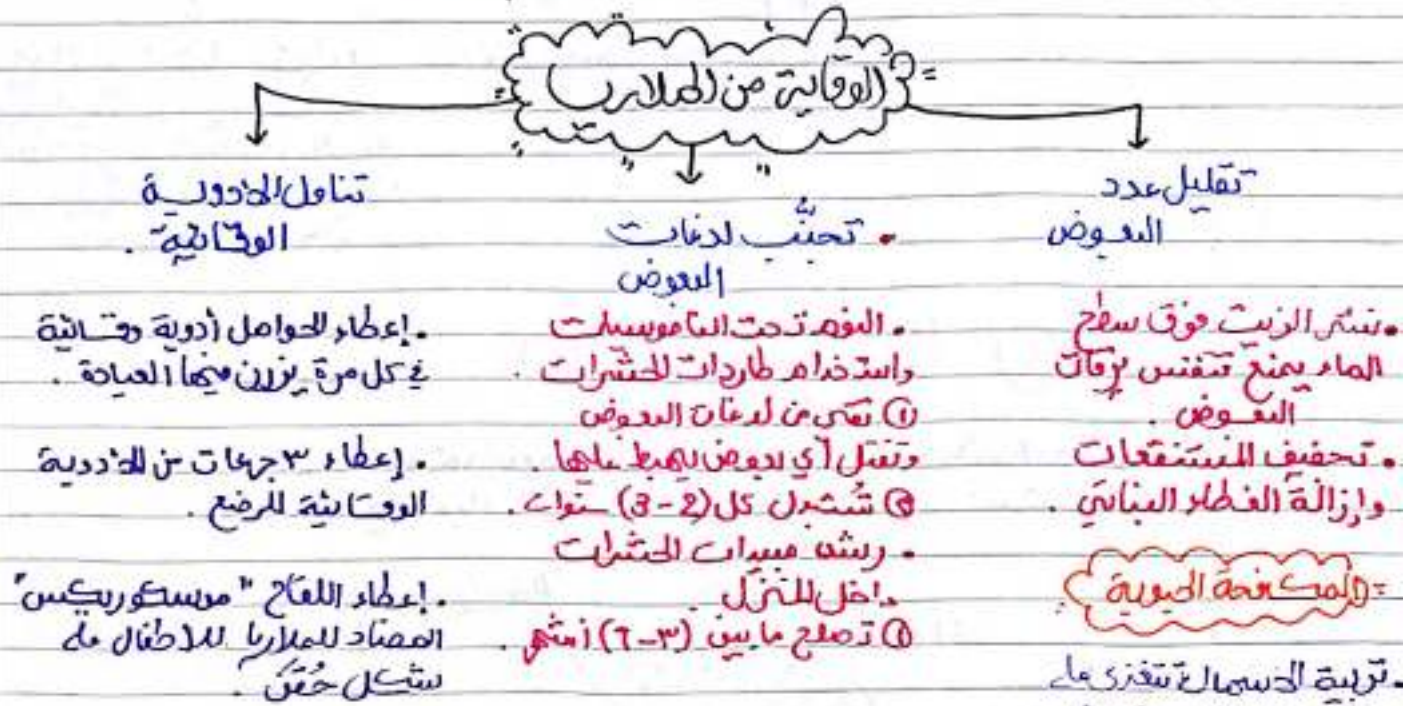 الوقاية من الملاريا
تقليل عدد
البعوض
• نشر الزيت فوق سطح
الماء يمنع تنفس يرقات
البعوض .
• تجفيف المستنقعات
وإزالة الغطاء النباتي .
المكافحة الحيوية
• تربية الأسماك تتغذى على
• تجنُّب لدغات
البعوض
• النوم تحت الناموسيات
واستخدام طاردات الحشرات .
① تقي من لدغات البعوض
وتقتل أي بعوض يهبط عليها .
② تُستبدل كل (2-3) سنوات .
• رش مبيدات الحشرات
داخل المنزل .
① تصلح ما بين (٣-٦) أشهر .
تناول الأدوية
الوقائية .
• إعطاء الحوامل أدوية وقائية
في كل مرة يزرن فيها العيادة .
• إعطاء ٣ جرعات من الأدوية
الوقائية للرضع .
• إعطاء اللقاح "موسكوريكس"
المضاد للملاريا للأطفال على
شكل حُقَن .